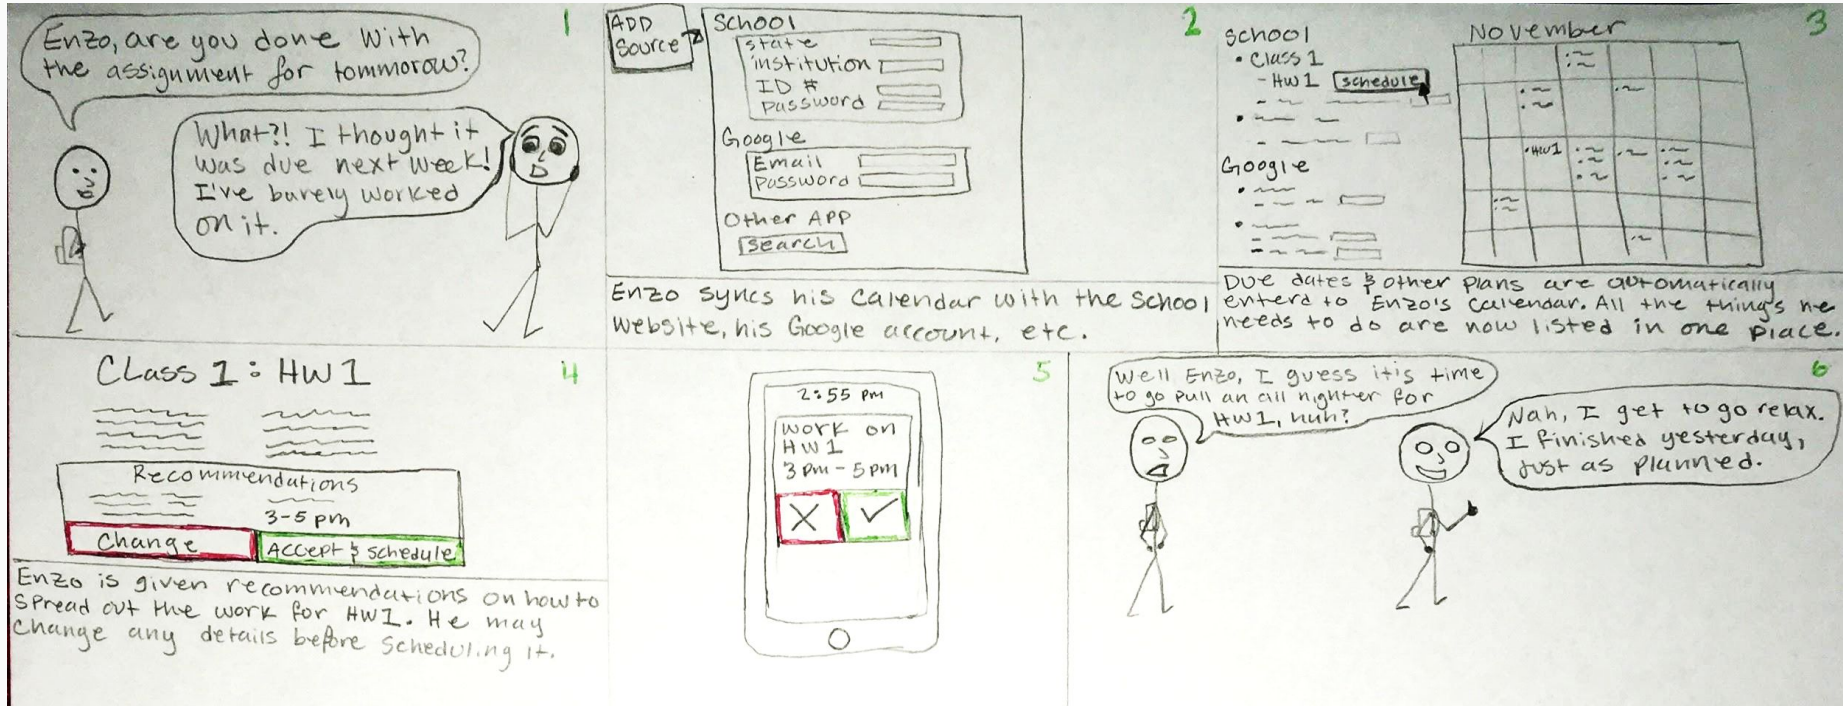 1
Enzo, are you done with
the assignment for tommorow?
What?! I thought it
was due next week!
I've barely worked
on it.
2
ADD
Source
School
state
institution
ID #
password
Google
Email
Password
Other APP
search
Enzo syncs his calendar with the school
website, his Google account, etc.
3
School
• Class 1
- HW1 schedule
Google
November
• HW1
Due dates & other plans are automatically
enterd to Enzo's calendar. All the things he
needs to do are now listed in one place.
4
Class 1: HW1
Recommendations
3-5 pm
Change
Accept & schedule
Enzo is given recommendations on how to
spread out the work for HW1. He may
change any details before scheduling it.
5
2:55 pm
work on
HW1
3 pm - 5 pm
6
Well Enzo, I guess it's time
to go pull an all nighter for
HW1, huh?
Nah, I get to go relax.
I finished yesterday,
just as planned.